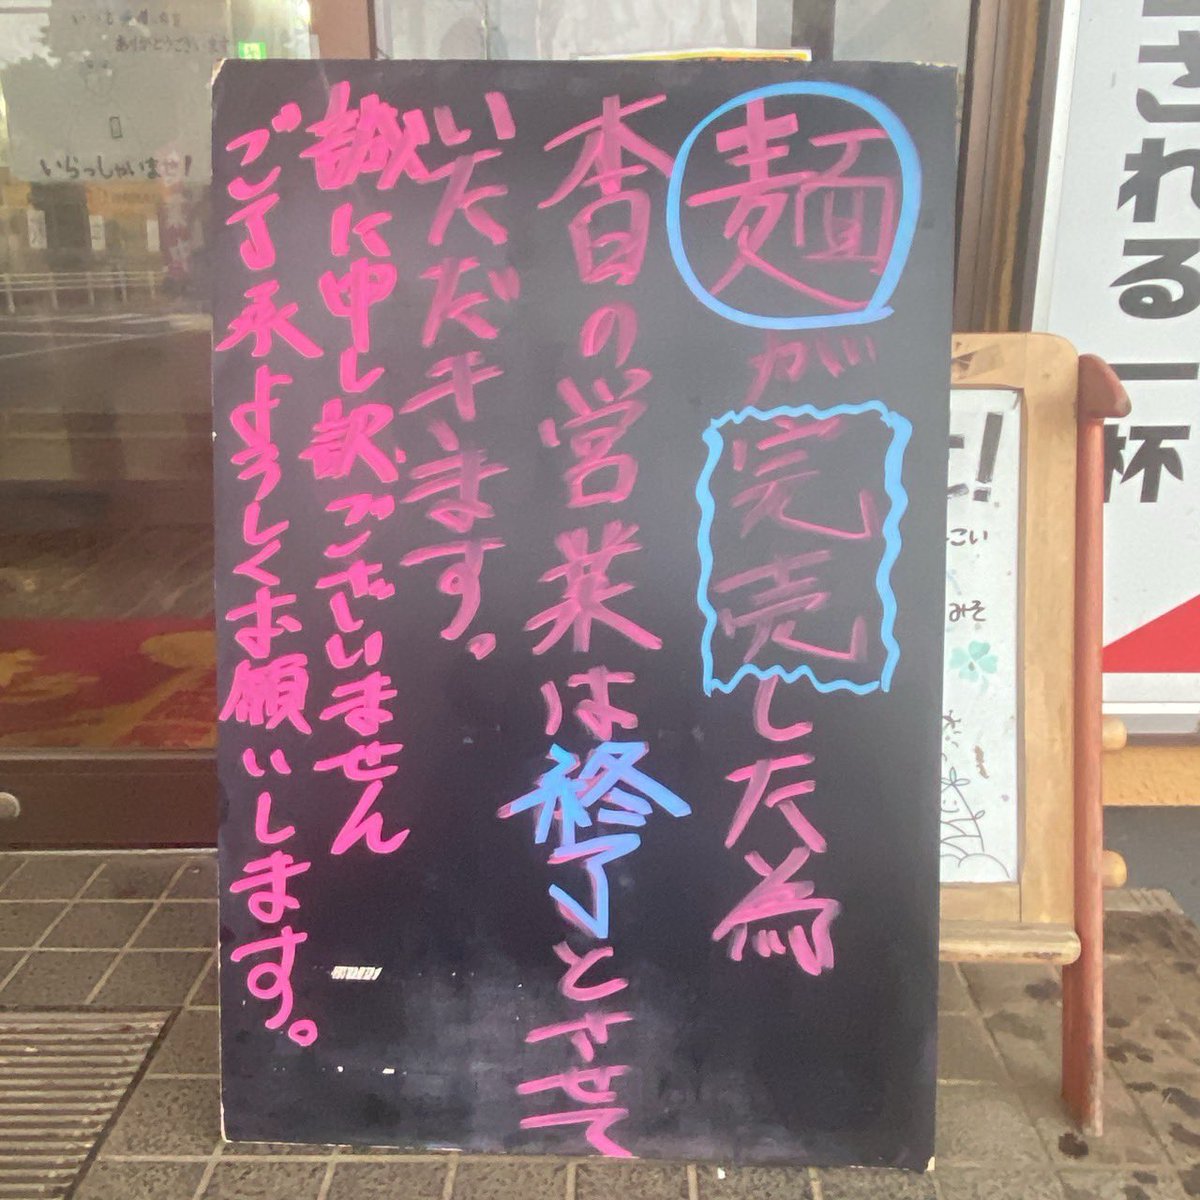 麺が完売した為
本日の営業は終了とさせて
いただキます。
誠に申し訳ございません
ご了承よろしくお願いします。
ありがとうございます
いらっしゃいませ!
される一杯
こい
みそ